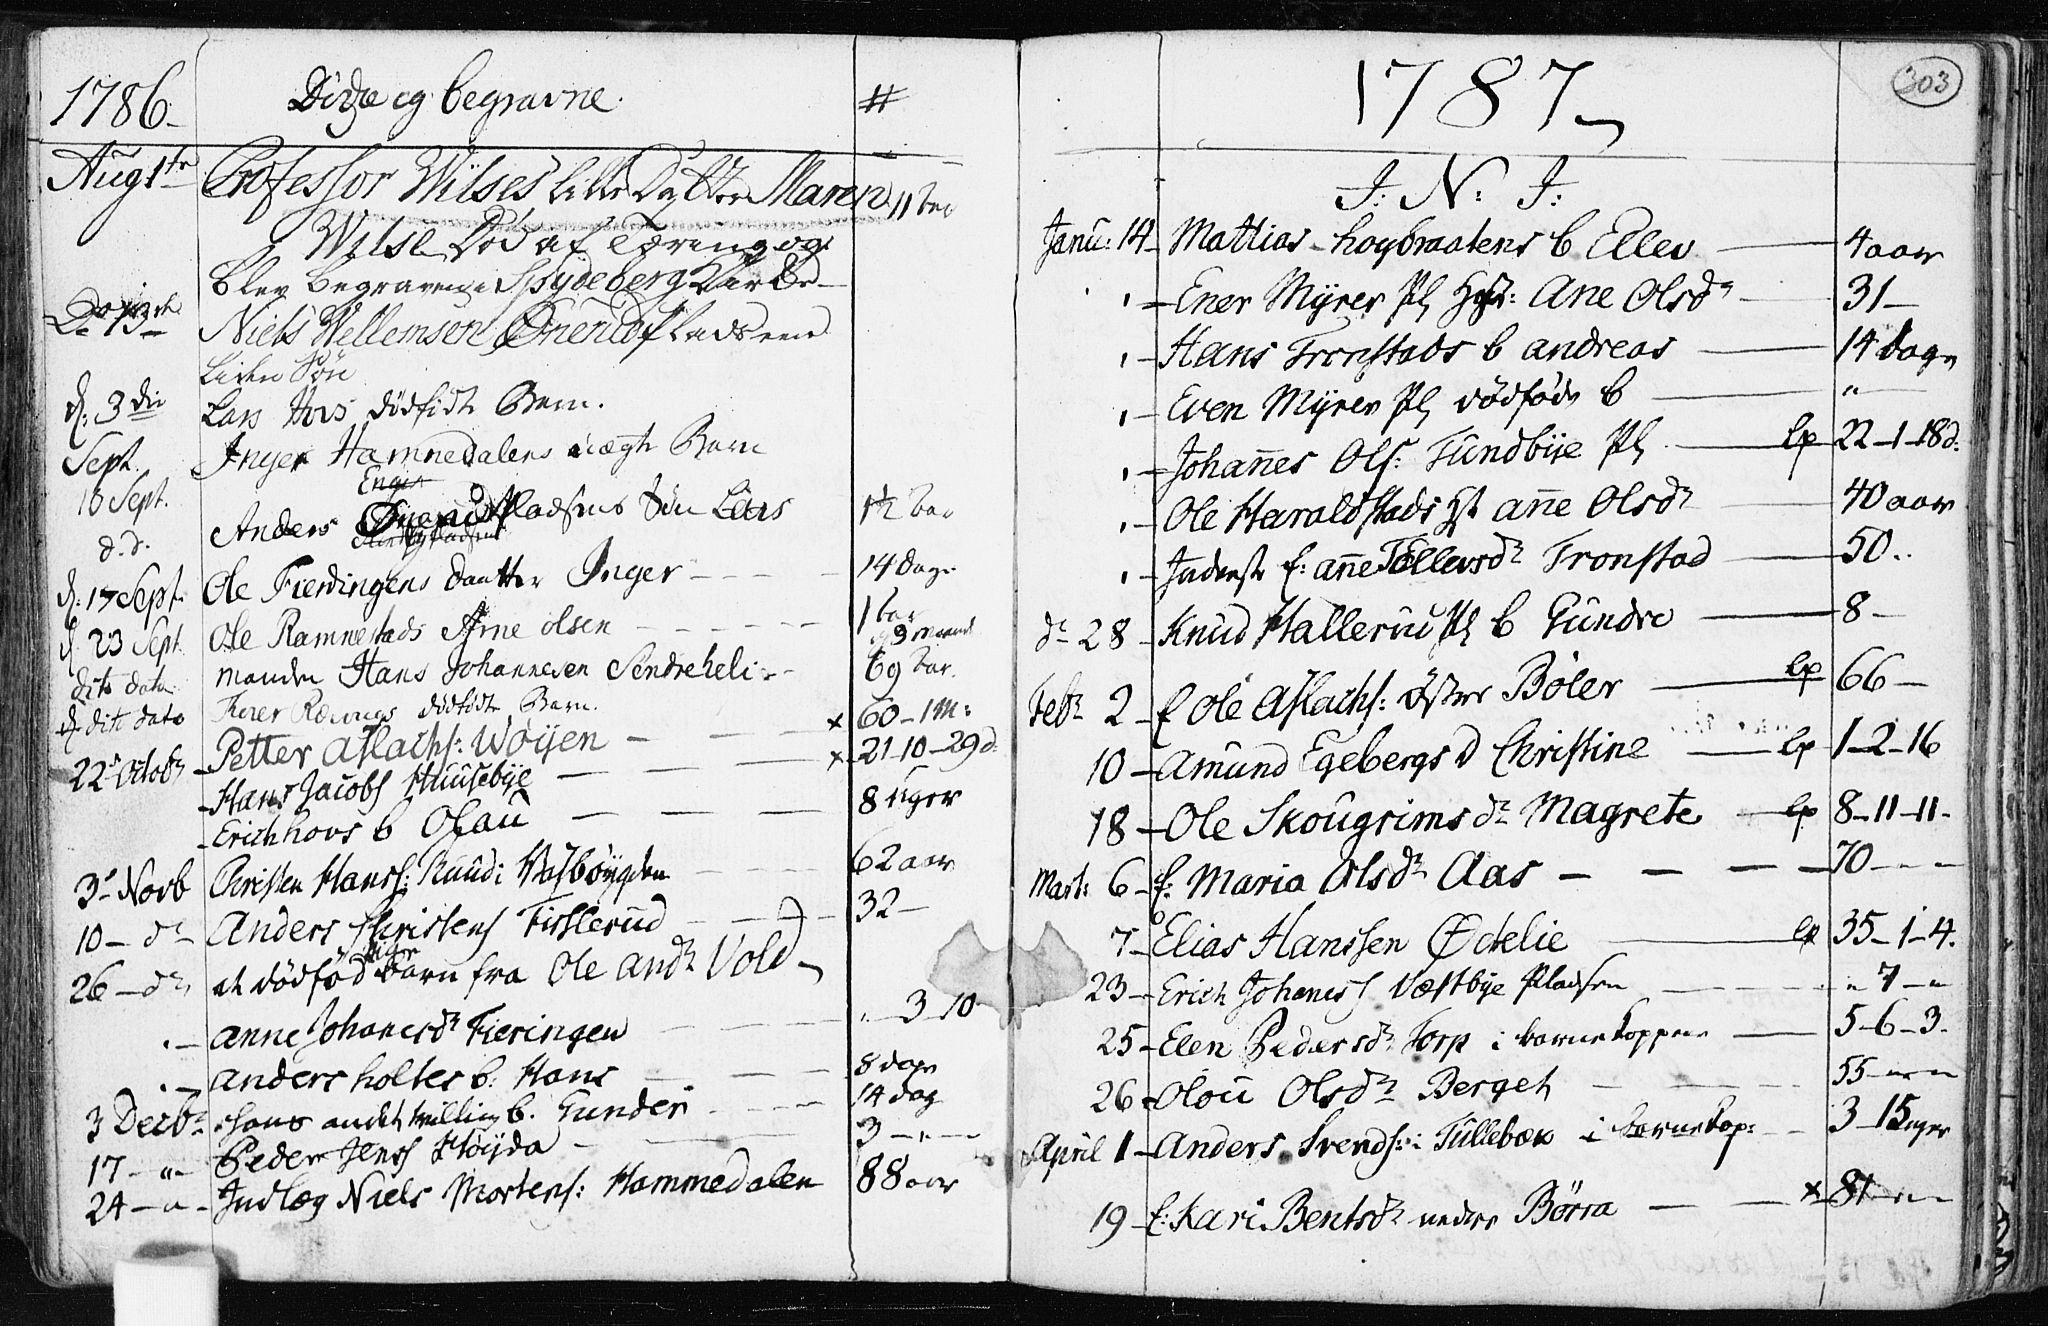 1786. Døde og begravne. #
Aug 1te Professor Wilses lille Datter Maren 11 aar
Wilse Død af Tæring og
blev begraven i Spydeberg Kirke
Do 13de Niels Wellemsen Ønerud Pladsens
liden Søn
d. 3die Lars Hovs dødfødt Barn.
Sept. Inger Hammedalens uægte Barn
Enger
10 Sept. Anders Pladsens Søn Lars 1½ aar
d. d.
d. 17 Sept. Ole Fierdingens Daatter Inger 14 Dage
d. 23 Sept. Ole Ramnestads Arne Olsen 1 aar
9 Maand
dito dato Manden Hans Johannesen Søndreheli 69 aar.
d. dito dato dødfødt Barn.
22de Octobr Petter Aslachs: Wøyen x 60-1M:
Hans Jacobs Huusebye x 21-10-29d.
Erich hovs b Olau 8 uger
3de Novb Christen Hanss: Ruud i Vasbøygden 62 aar
10 - dr Anders Christens Fisslerud 32 -
26 - dr et dødfød Barn fra Ole Andr Vold
" - Anne Johanesdr Fieringen " 3 10
" - Anders holtes b. Hans 8 dage
3 Decbr hans andet tvilling b. Gunder 14 dag
17 - " - Peder Jens Høyda 3 - " -
24 - " - Indlæg Niels Mortens: Hammedalen 88 aar
1787 303
I: N: I:
Janu: 14 - Mattias hoybraatens b Ellev 4 aar
" - Ener Myrer Pl Hst: Ane Olsdr 31 -
" - Hans Tronstads b andreas 14 dage
" - Even Myrer Pl dødfødt b "
" - Johannes Ols: Tundbye Pl lp 22-1-18d.
" - Ole Haraldstads Hst anne Olsdr 40 aar
" - Inderste E: anne Tollevsdr Tronstad 50 "
dr 28 - Knud Hallerud Pl b Gundre 8 -
Febr 2 - E Ole Aslachs: Østre Bøler lp 66 -
10 - Amund Egebergs D Christine lp 1-2-16
18 - Ole Skougrims dr Magrete lp 8-11-11-
Mart: 6 - E: Maria Olsdr Aas 70 - - -
7 - Elias Hanssen Ødelie lp 35-1-4.
23 - Erich Johaness Vestbye Pladsen " 7 - "
25 - Elen Pedersdr Torp i barnekopper 5-6-3.
26 - Olou Olsdr Berget 55 - " - "
April 1 - Anders Svends: i Tullebæk i barnekop: 3-15 uger
19 - E: Kari Bentsdr nedre Børra x 81 - " - "